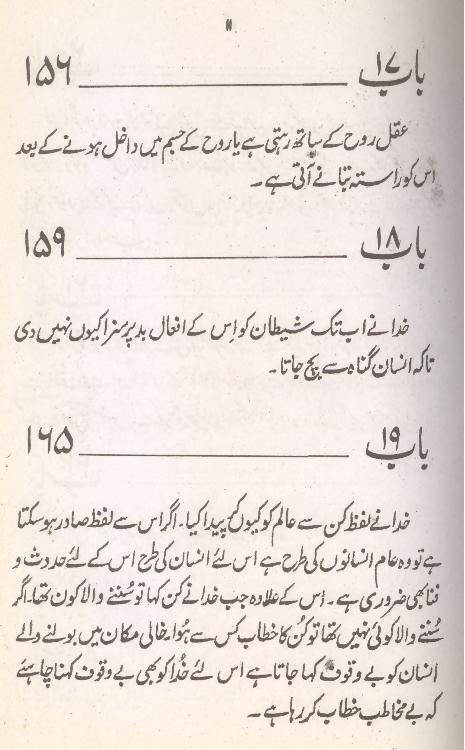 ۱۱
باب ۱۷ ــــــــــــ ۱۵۶
عقل روح کے ساتھ رہتی ہے یا روح کے جسم میں داخل ہونے کے بعد
اس کو راستہ بتانے آتی ہے۔
باب ۱۸ ــــــــــــ ۱۵۹
خدا نے اب تک شیطان کو اِس کے افعال بد پر سزا کیوں نہیں دی
تاکہ انسان گناہ سے بچ جاتا۔
باب ۱۹ ــــــــــــ ۱۶۵
خدا نے لفظ کن سے عالم کو کیوں کر پیدا کیا۔ اگر اس سے لفظ صادر ہو سکتا
ہے تو وہ عام انسانوں کی طرح ہے اس لئے انسان کی طرح اس کے لئے حدوث و
فنا بھی ضروری ہے۔ اس کے علاوہ جب خدا نے کن کہا تو سُننے والا کون تھا۔ اگر
سُننے والا کوئی نہیں تھا تو کُن کا خطاب کس سے ہُوا۔ خالی مکان میں بولنے والے
انسان کو بے وقوف کہا جاتا ہے اس لئے خُدا کو بھی بے وقوف کہنا چاہئے
کہ بے مخاطب خطاب کر رہا ہے۔